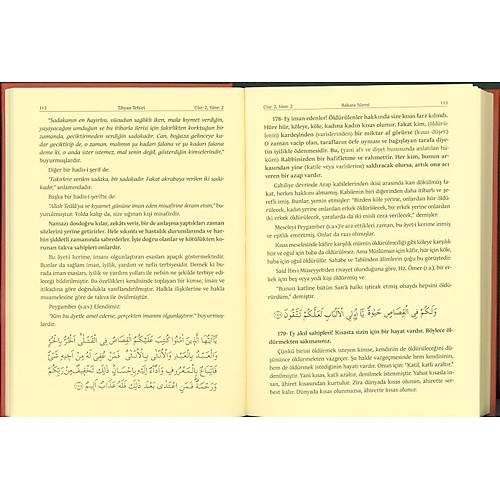 112 Tibyan Tefsiri Cüz: 2, Sûre: 2
"Sadakanın en hayırlısı, vücudun sağlıklı iken, mala kıymet verdiğin,
yaşayacağını umduğun ve bu itibarla ilerisi için fakirlikten korktuğun bir
zamanda, geciktirmeden verdiğin sadakadır. Can, boğaza gelinceye ka-
dar geciktirip de, o zaman, malımın şu kadarı falana ve şu kadarı falana
deme ki, o anda ister istemez, mal senin değil, gösterdiğin kimselerindir,"
buyurmuşlardır.
Diğer bir hadis-i şerif de:
"Fakirlere verilen sadaka, bir sadakadır. Fakat akrabaya verilen iki sada-
kadır," anlamındadır.
Başka bir hadis-i şerifte de:
"Allah Teâlâ'ya ve kıyamet gününe iman eden misafirine ikram etsin," bu-
yurulmuştur. Yolda kalıp da, size sığınan kişi misafirdir.
Namazını dosdoğru kılar, zekâtı verir, bir de anlaşma yaptıkları zaman
sözlerini yerine getirirler. Hele sıkıntı ve hastalık durumlarında ve har-
bin şiddetli zamanında sabrederler. İşte doğru olanlar ve kötülükten ko-
runan takva sahipleri onlardır.
Bu âyet-i kerime, insanı olgunlaştıran esasları apaçık göstermektedir.
Bunlar da sağlam iman, iyilik, yardım ve nefis terbiyesidir. Demek ki bu-
rada iman esasları, iyilik ve yardım yolları ile nefsin ne şekilde terbiye edi-
leceği bildirilmektedir. Bu özellikleri kendinde toplayan bir kimse; iman ve
itikadına göre doğrulukla vasıflandırılmıştır. Halkla ilişkilerine ve hakla
muamelesine göre de takva ile övülmüştür.
Peygamber (s.a.v.) Efendimiz:
"Kim bu âyetle amel ederse, gerçekten imanını olgunlaştırır," buyurmuş-
lardır.
يَٓا اَيُّهَا الَّذ۪ينَ اٰمَنُوا كُتِبَ عَلَيْكُمُ الْقِصَاصُ فِي الْقَتْلٰىۜ اَلْحُرُّ بِالْحُرِّ
وَالْعَبْدُ بِالْعَبْدِ وَالْاُنْثٰى بِالْاُنْثٰىۜ فَمَنْ عُفِيَ لَهُ مِنْ اَخ۪يهِ شَيْءٌ
فَاتِّبَاعٌ بِالْمَعْرُوفِ وَاَدَٓاءٌ اِلَيْهِ بِاِحْسَانٍۜ ذٰلِكَ تَخْف۪يفٌ مِنْ رَبِّكُمْ
وَرَحْمَةٌۜ فَمَنِ اعْتَدٰى بَعْدَ ذٰلِكَ فَلَهُ عَذَابٌ اَل۪يمٌ
Cüz: 2, Sûre: 2 Bakara Sûresi 113
178- Ey iman edenler! Öldürülenler hakkında size kısas farz kılındı.
Hüre hür, köleye, köle, kadına kadın kısas olunur. Fakat kim, (öldürü-
lenin) kardeşinden (varislerinden) bir miktar af görürse (kısas düşer).
O zaman vacip olan, tarafların örfe uyması ve bağışlayan tarafa diye-
tin iyilikle ödenmesidir. Bu, (yani afv ve diyet hususunda anlatılan hü-
küm) Rabbinizden bir hafifletme ve rahmettir. Her kim, bunun ar-
kasından yine (katile veya varislerine) saldıracak olursa, artık ona acı
veren bir azap vardır.
Cahiliye devrinde Arap kabilelerinden ikisi arasında kan dökülmüş fa-
kat, herkes hakkını almamış. Kabilenin biri diğerinden daha itibarlı ve şe-
refli imiş. Bunlar, yemin etmişler: "Bizden köle yerine, onlardan hür öldü-
receğiz. Kadın yerine, onlardan erkek öldüreceğiz. Bir hür yerine, onlardan
iki erkek öldürülecek, yaralarda da iki misli ceza verilecek," demişler.
Meseleyi Peygamber (s.a.v.)'e arz ettikleri zaman, bu âyet-i kerime inmiş
ve eşitlik emretmiş. Onlar da razı olmuşlar.
Kısas meselesinde kâfire karşılık mümin öldürülmediği gibi köleye karşılık
hür ve oğul için de baba da öldürülmez. Ama Müslüman için kâfir, hür için köle,
baba için oğul öldürülür. Sahabe ve Tabiinden âlimlerin çoğu bu görüştedir.
Said İbn-i Müseyyeb'den rivayet olunduğuna göre, Hz. Ömer (r.a.), bir er-
kek için beş veya yedi kişi öldürtmüş ve:
"Bunun katline bütün San'a halkı iştirak etmiş olsaydı hepsini öldü-
rürdüm," demiştir.
وَلَكُمْ فِي الْقِصَاصِ حَيٰوةٌ يَٓا اُو۬لِي الْاَلْبَابِ لَعَلَّكُمْ تَتَّقُونَ
179- Ey akıl sahipleri! Kısasta sizin için bir hayat vardır. Böylece öl-
dürmekten sakınasınız.
Çünkü birini öldürmek isteyen kimse, kendinin de öldürüleceğini düşü-
nünce öldürmekten vazgeçer. Şu halde vazgeçmesinde hem kendininin,
hem de öldürmek istediğinin hayatı vardır. Onun için: "Katil, katli azaltır,"
denilmiştir. Yani kısas, katli azaltır, denilmek istenmiştir. Yahut kısasla in-
san, âhiret kısasından kurtulur. Zira dünyada kısas olunan, âhirette ser-
best kalır. Dünyada kısas olunmazsa, âhirette kısas olunur.